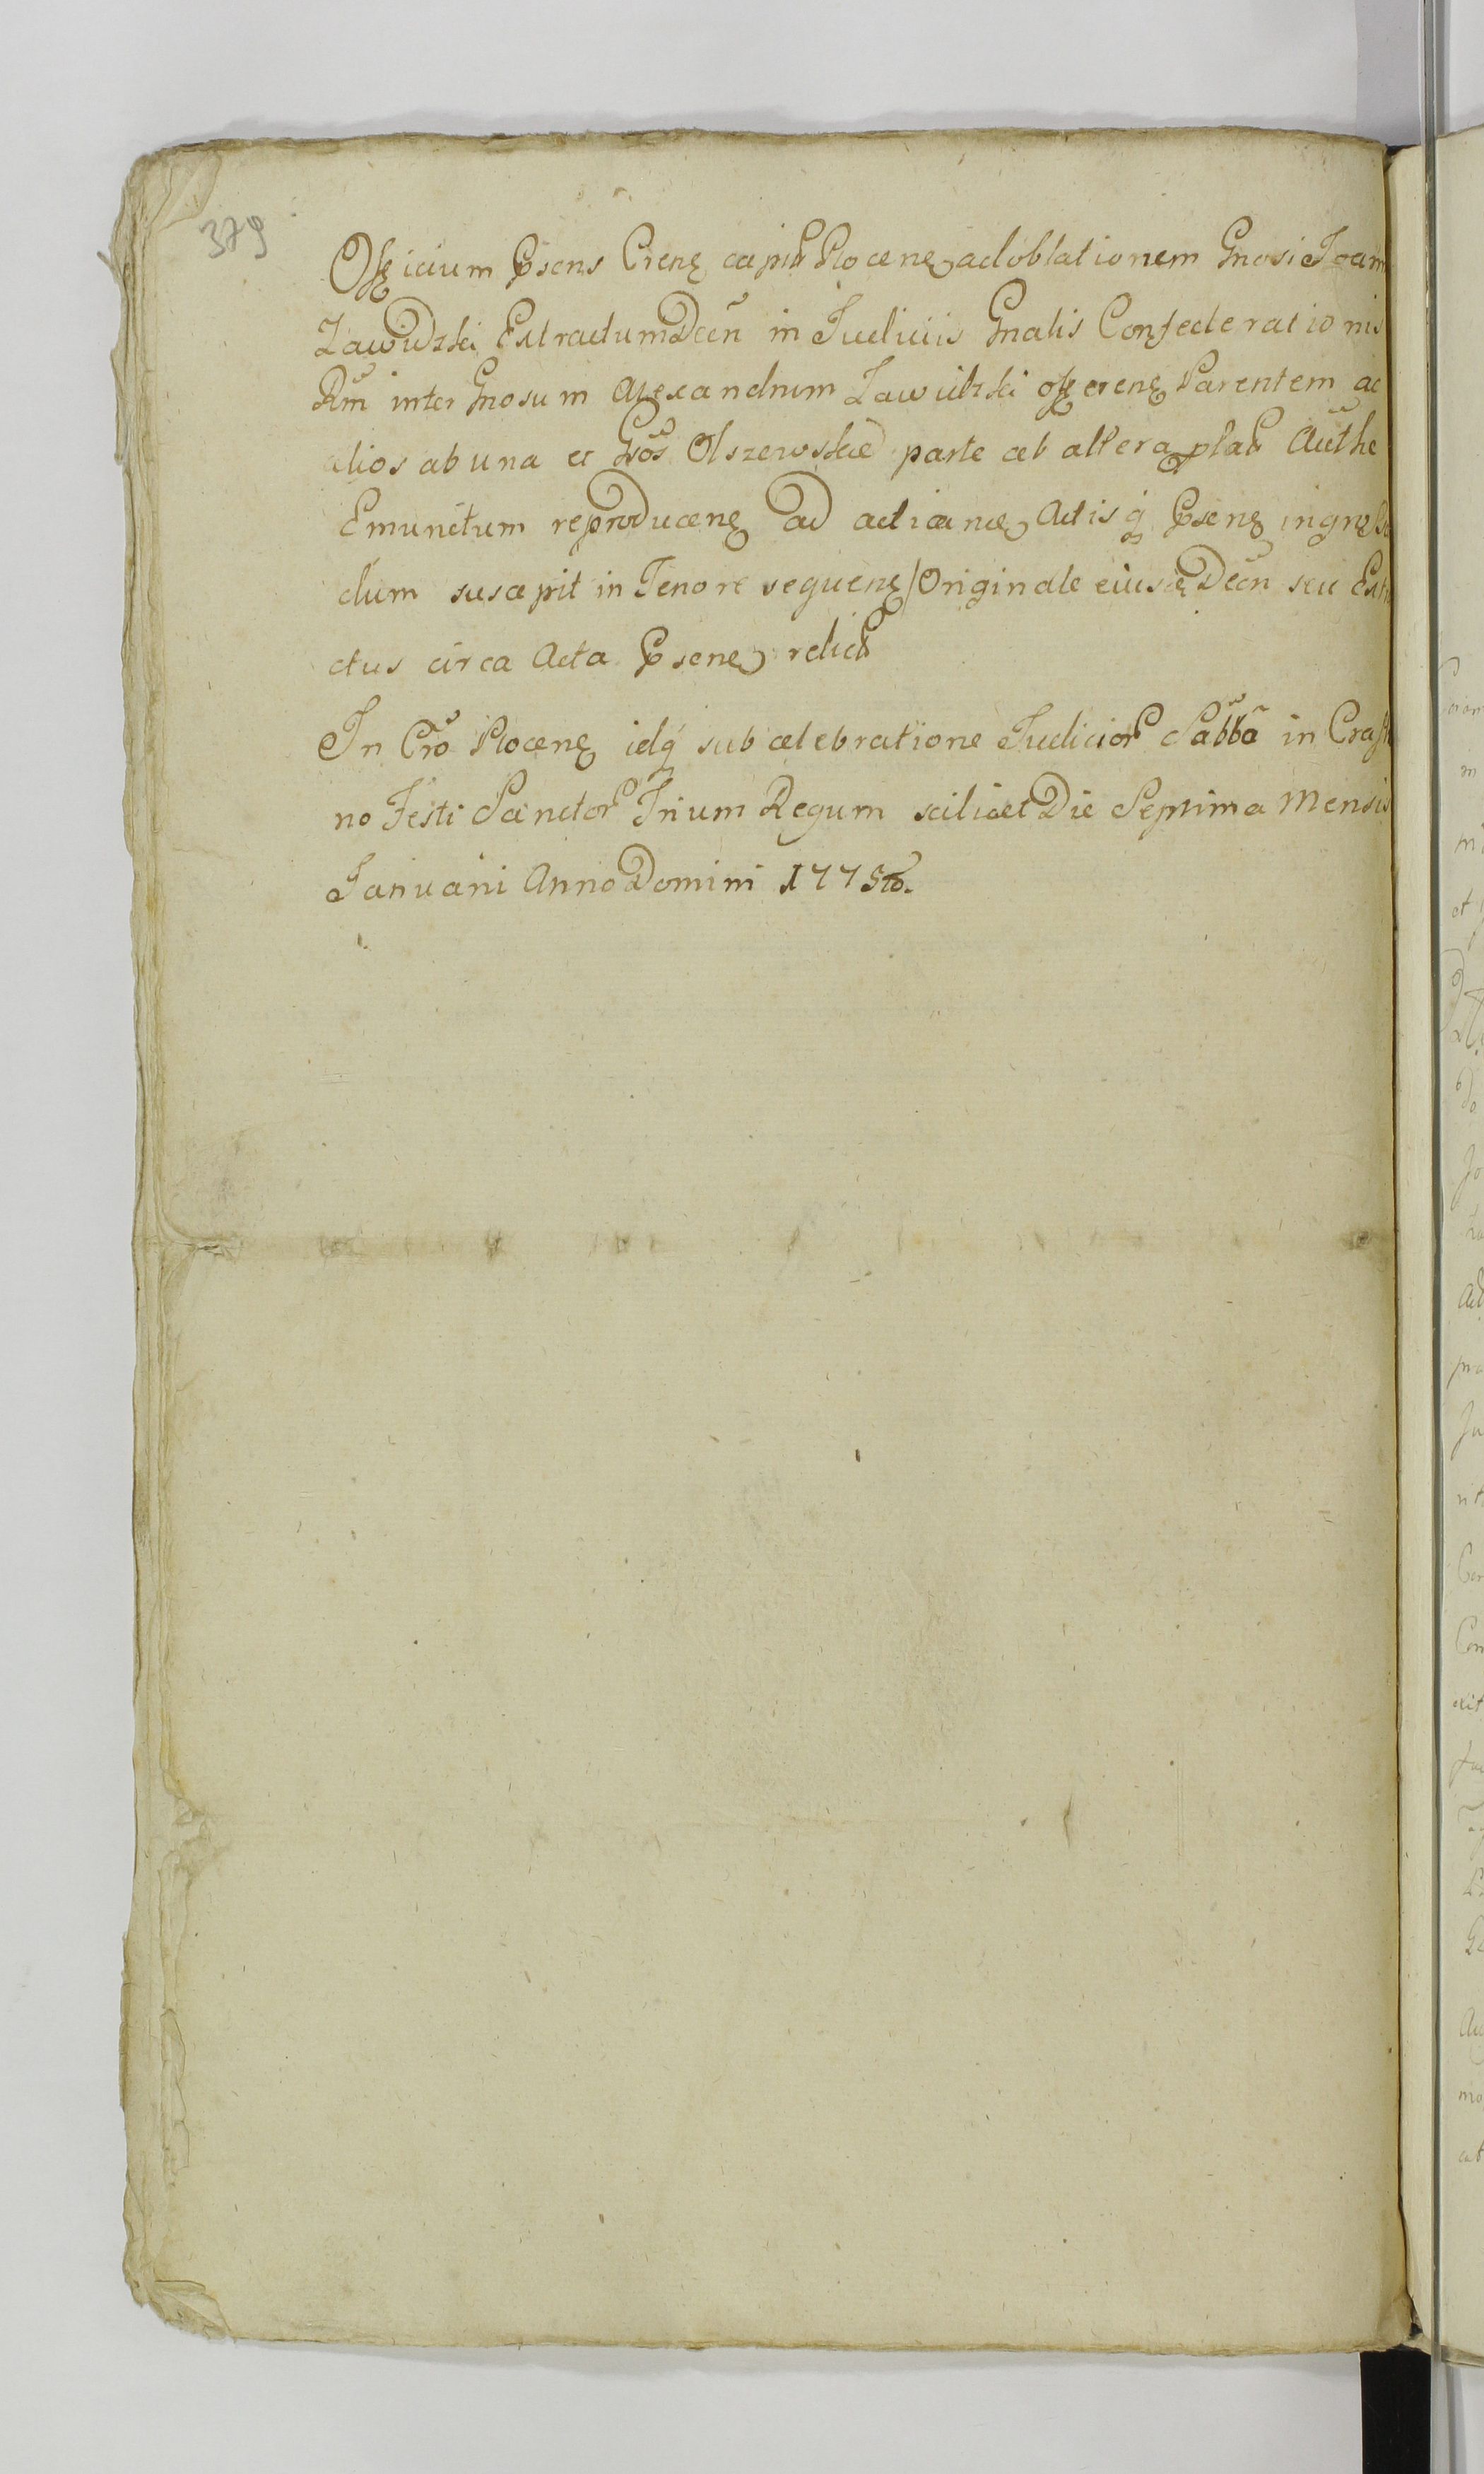 379
Officium Psens Crens capit Plocens ad oblationem Gnosi Joan
Zawidzki Extractum Dcin in Judiciis Gnalis Confederationis
Rm inter Gnosum Alexandrum Zawidzki offerens Parentem ac
alios ab una et Gsos Olszewskie parte ab altera plat Authe
Emunctum reproducens ad acticans Actis q Psens ingrossa
dum suscepit in Tenore sequens / Originale eiusd Dcin seu Extra
ctus circa Acta Psens relict
In Cro Plocens idq sub celebratione Judicior Sabbo in Crasti
no Festi Sanctor Trium Regum scilicet Die Septima Mensis
Januarii Anno Domini 1775to.